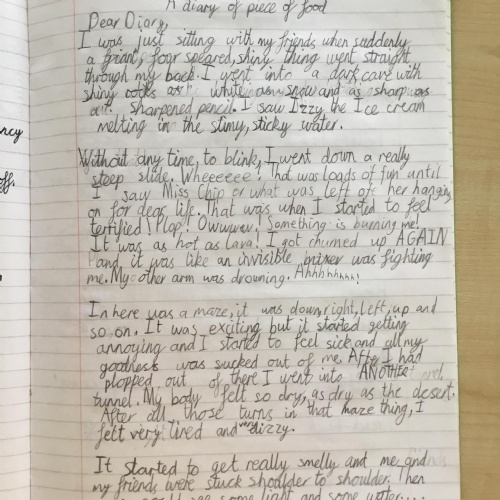 A diary of piece of food
Dear Diary,
I was just sitting with my friends when suddenly
a giant, four speared, shiny thing went straight
through my back. I went into a dark cave with
shiny rocks as white as snow and as sharp as
a sharpened pencil. I saw Izzy the Ice cream
melting in the slimy, sticky water.
Without any time, to blink, I went down a really
steep slide. Wheeeeee! That was loads of fun until
I saw Miss Chip or what was left of her hanging
on for dear life. That was when I started to feel
terrified! Plop! Owwwww! Something is burning me!
It was as hot as lava! I got churned up AGAIN
and it was like an invisible mixer was fighting
me. My other arm was drowning. Ahhhhhhh!
In here was a maze, it was down, right, left, up and
so on. It was exciting but it started getting
annoying and I started to feel sick and all my
goodness was sucked out of me. After I had
plopped out of there I went into ANOTHER
tunnel. My body felt so dry, as dry as the desert.
After all those turns in that maze thing, I
felt very tired and very dizzy.
It started to get really smelly and me and
my friends were stuck shoulder to shoulder. Then
some light and some water...